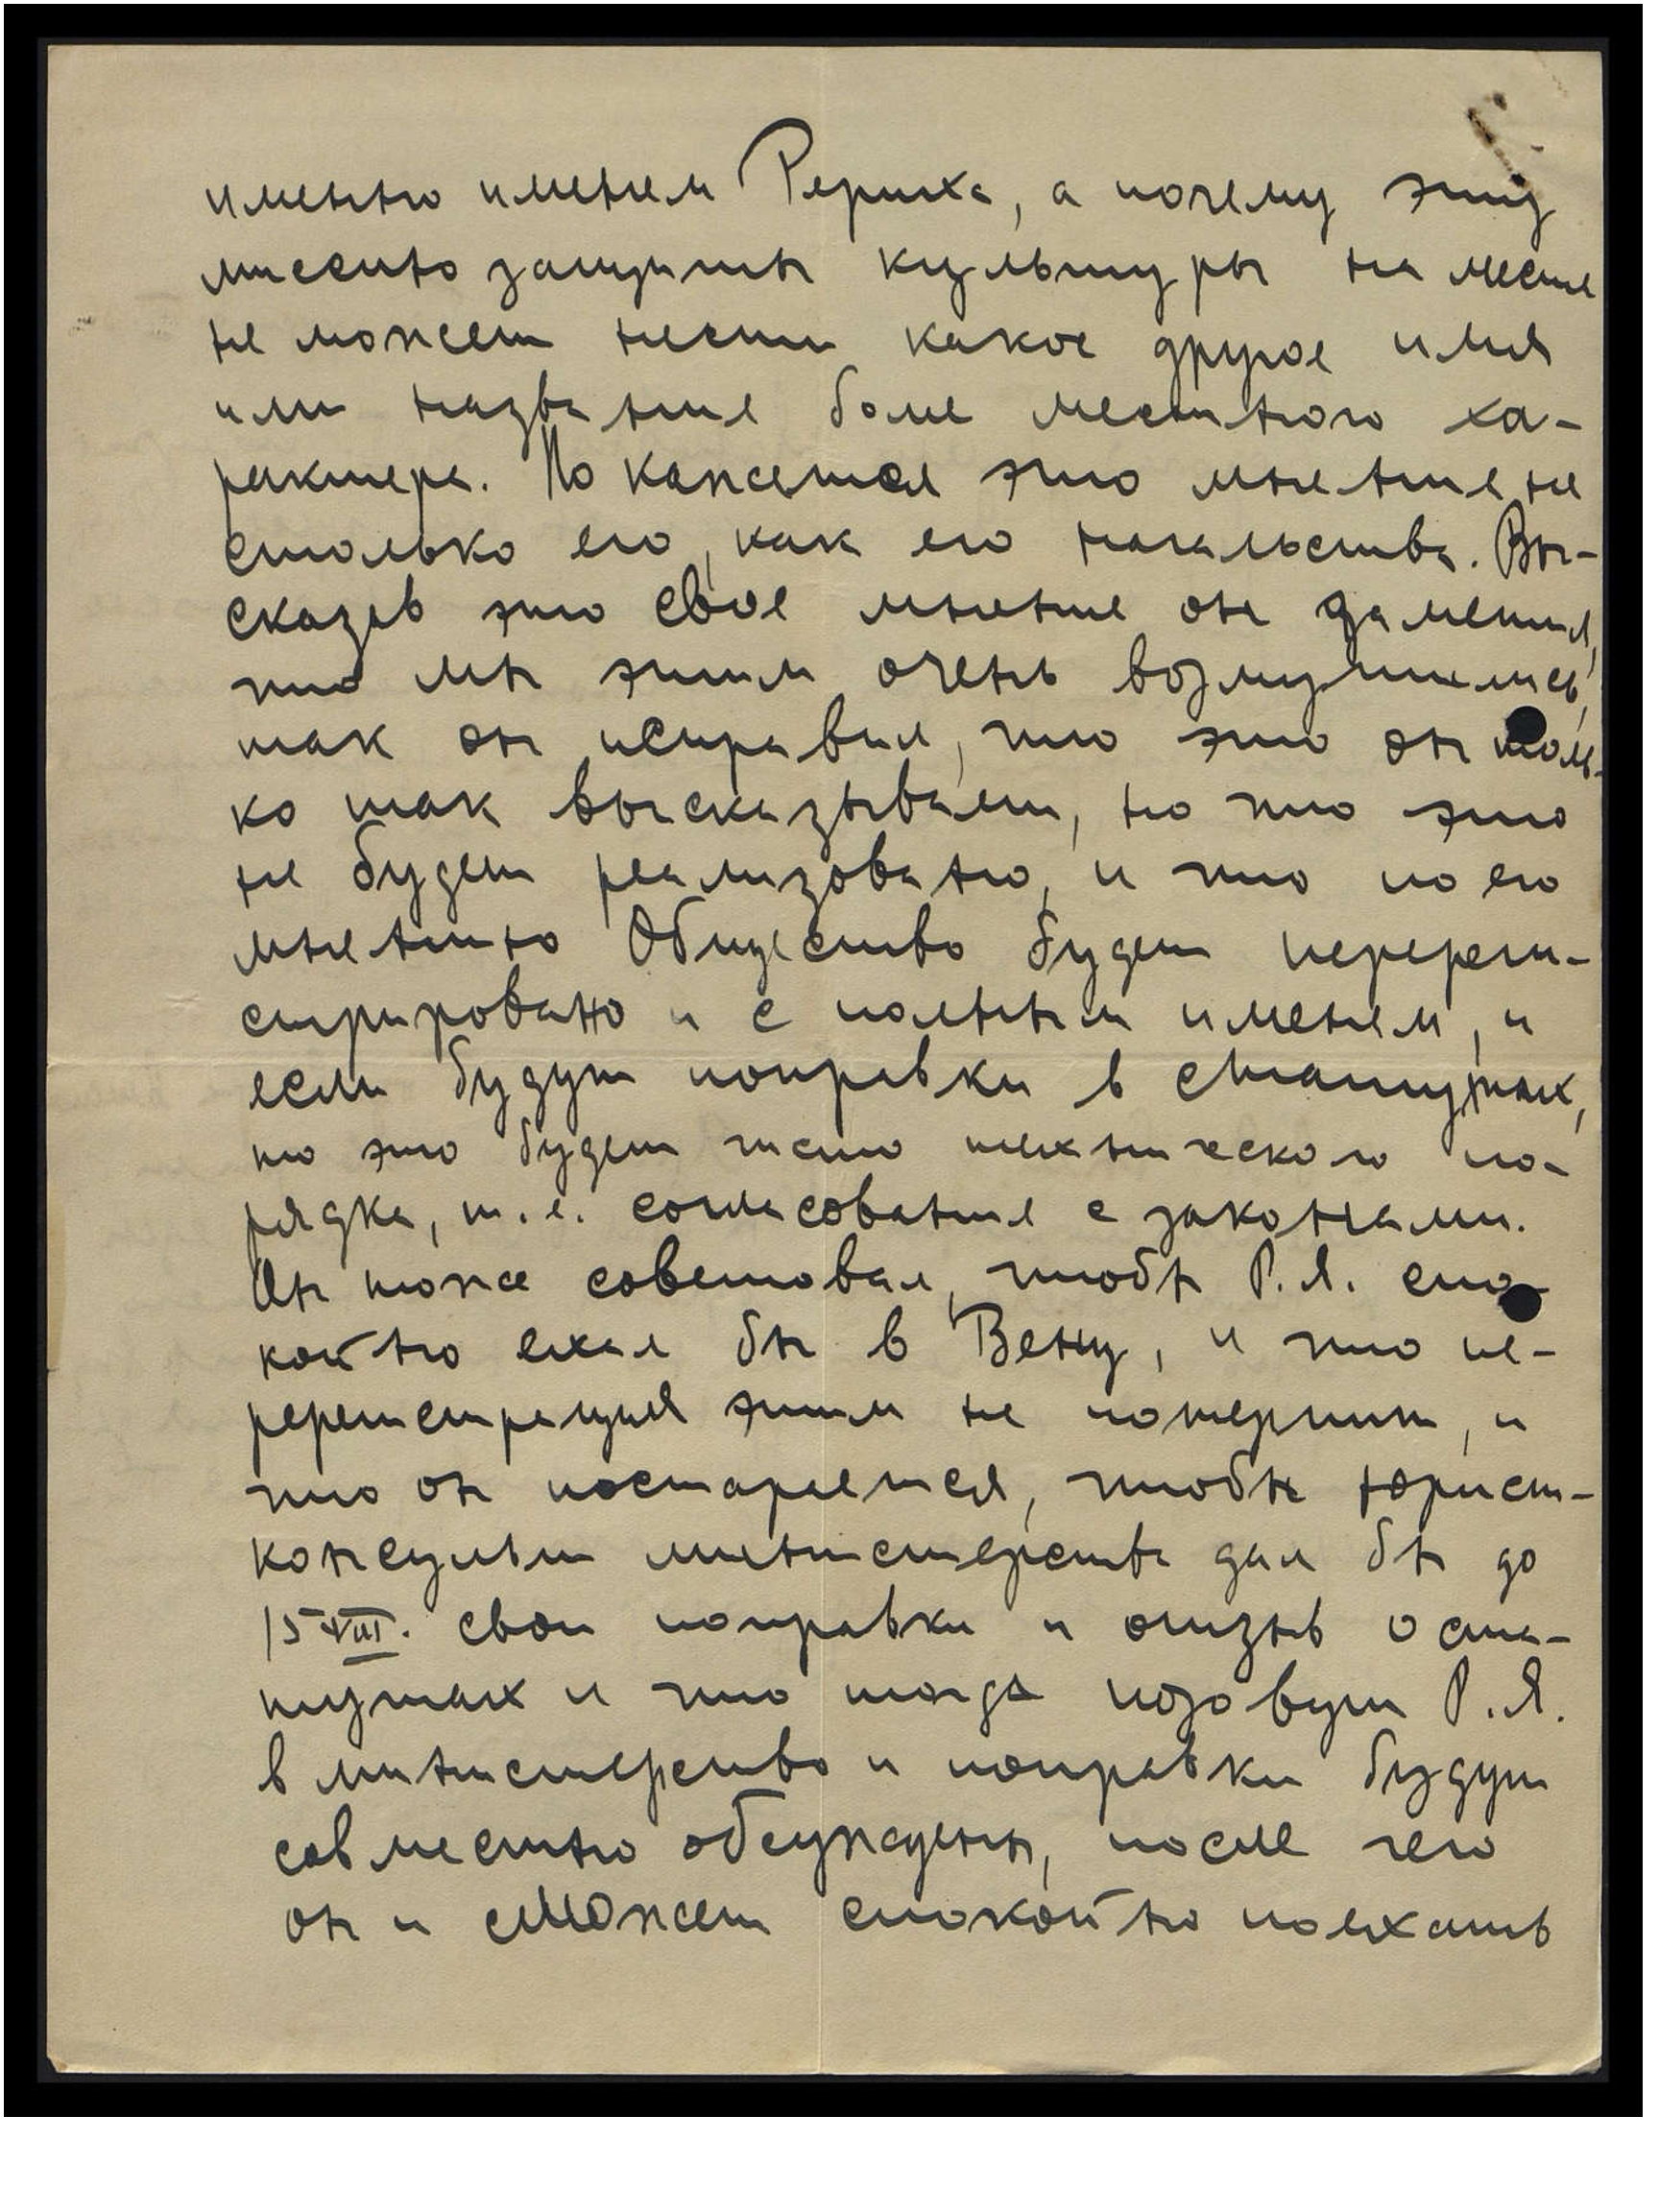 именно именем Рериха, а почему эту
миссию защиты культуры на месте
не может нести какое другое имя
или название боле местного ха-
рактера. Но кажется это мнение не
столько его, как его начальства. Вы-
сказав это свое мнение он заметил,
что мы этим очень возмутились,
так он исправил, что это он толь-
ко так высказывает, но что это
не будет реализовано, и что по его
мнению Общество будет перереги-
стрировано и с полным именем, и
если будут поправки в статутах,
то это будет чисто технического по-
рядка, т.е. согласование с законами.
Он тоже советовал, чтобы Р.Я. спо-
койно ехал бы в Вену, и что пе-
ререгистрация этим не потерпит, и
что он постарается, чтобы юрист-
консульт министерства дал бы до
15 VIII. свои поправки и отзыв о ста-
тутах и что тогда позовут Р.Я.
в министерство и поправки будут
совместно обсуждены, после чего
он и сможет спокойно поехать